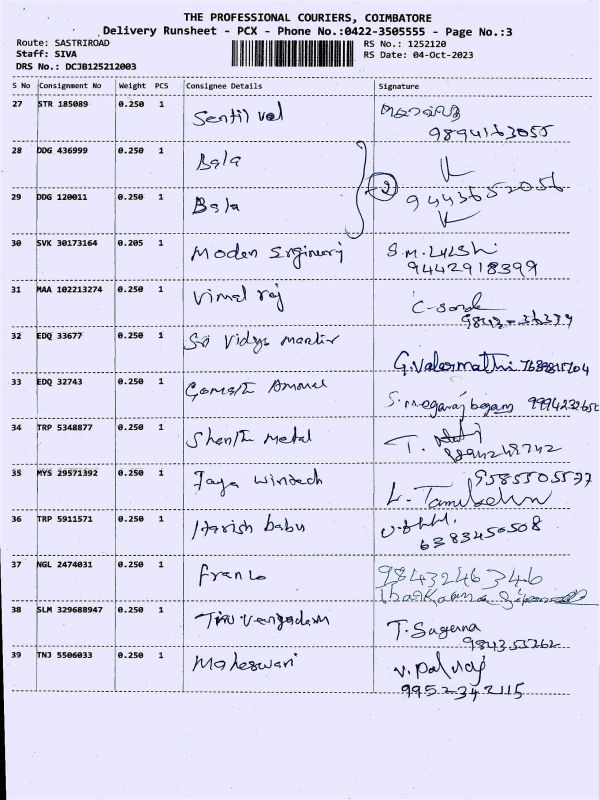 THE PROFESSIONAL COURIERS, COIMBATORE
Delivery Runsheet - PCX - Phone No.:0422-3505555 - Page No.:3
Route: SASTRIROAD RS No.: 1252120
Staff: SIVA RS Date: 04-Oct-2023
DRS No.: DCJB125212003
S No Consignment No Weight PCS Consignee Details Signature
27 STR 185089 0.250 1 Sentil vel
9894163055
28 DDG 436999 0.250 1 Bala
2 9443652056
29 DDG 120011 0.250 1 Bala
30 SVK 30173164 0.205 1 Moden
9442918399
31 MAA 102213274 0.250 1 Vimal raj
32 EDQ 33677 0.250 1 Sri Vidya
G.Valarmathi
33 EDQ 32743 0.250 1
9994232652
34 TRP 5348877 0.250 1 Metal
T.
35 MYS 29571392 0.250 1 Jaya Wintech 9585505577
36 TRP 5911571 0.250 1 Harish babu
6383450508
37 NGL 2474031 0.250 1 Franco 9843246346
38 SLM 329688947 0.250 1 Tiru Vengadam T. Saguna
39 TNJ 5506033 0.250 1 Maheswari V. Palraj
9952342115